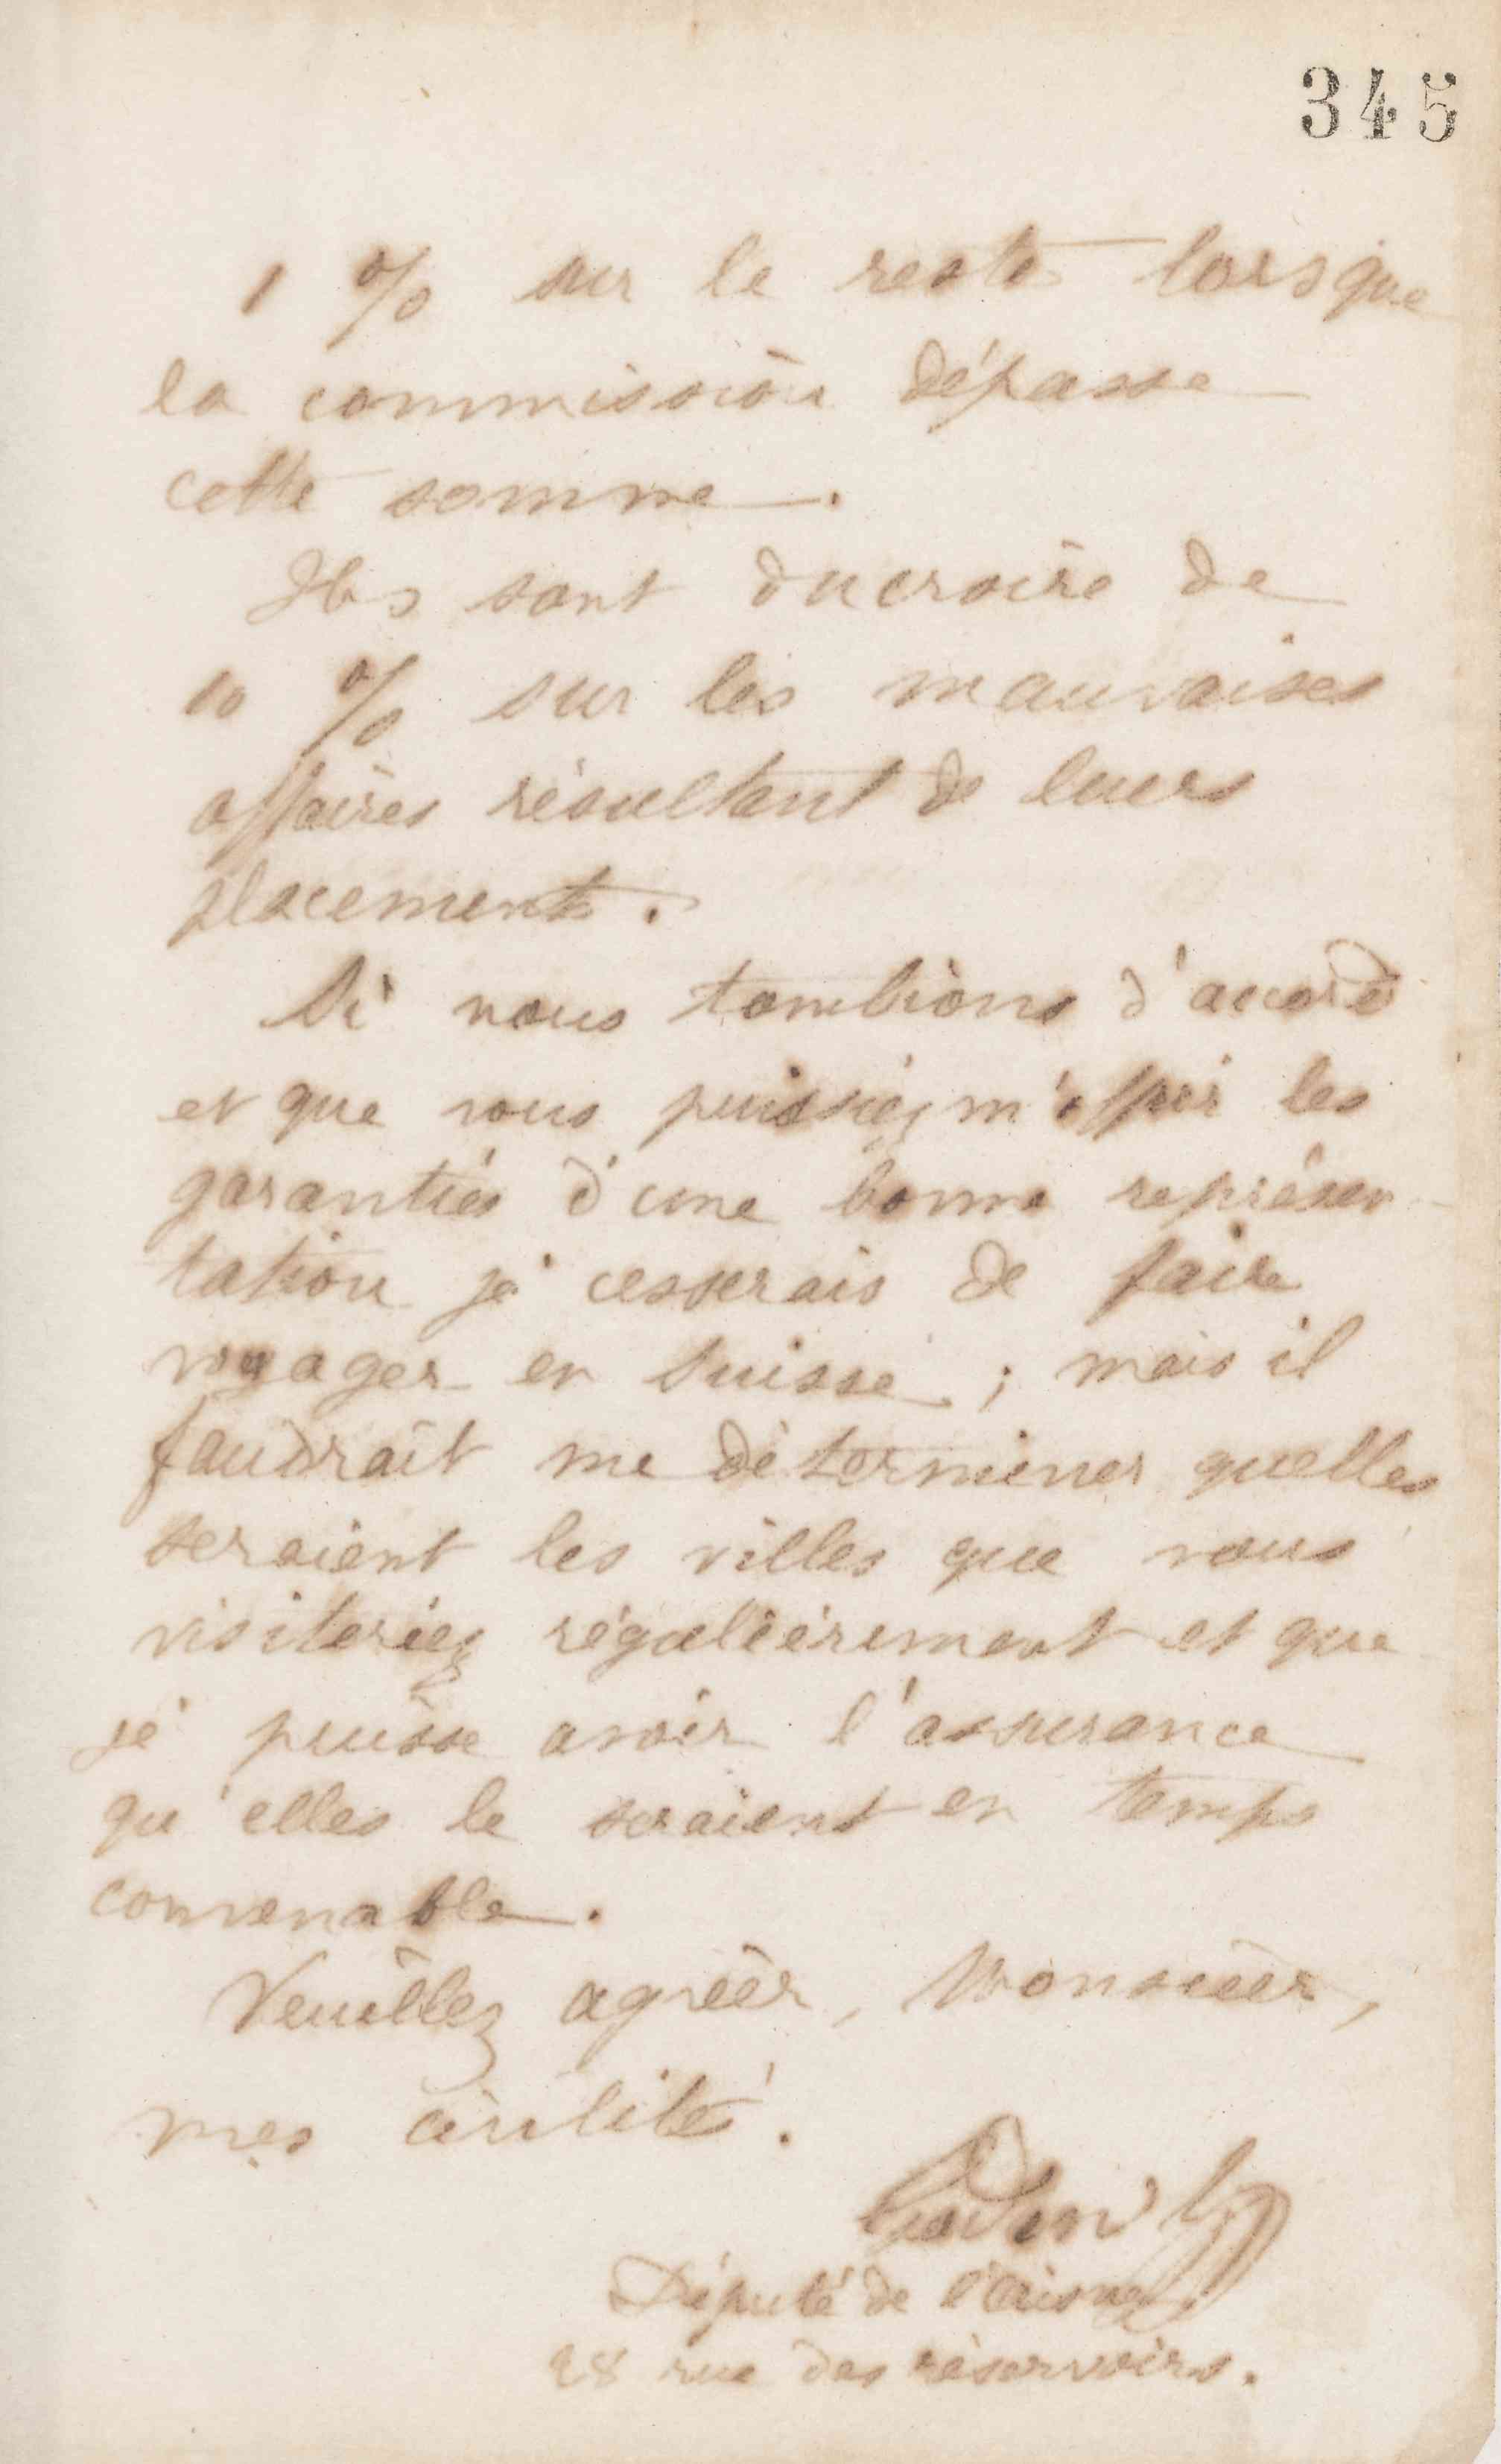 345
1 % sur le reste lorsque
la commission dépasse
cette somme.
Ils sont ducroire de
10 % sur les mauvaises
affaires résultant de leurs
placements.
Si nous tombions d'accord
et que vous puissiez m'offrir les
garanties d'une bonne représen-
tation je cesserais de faire
voyager en Suisse ; mais il
faudrait me déterminer quelles
seraient les villes que vous
visiteriez régulièrement et que
je puisse avoir l'assurance
qu'elles le seraient en temps
convenable.
Veuillez agréer, Monsieur,
mes civilités.
Godin
Député de l'Aisne
28 rue des réservoirs.